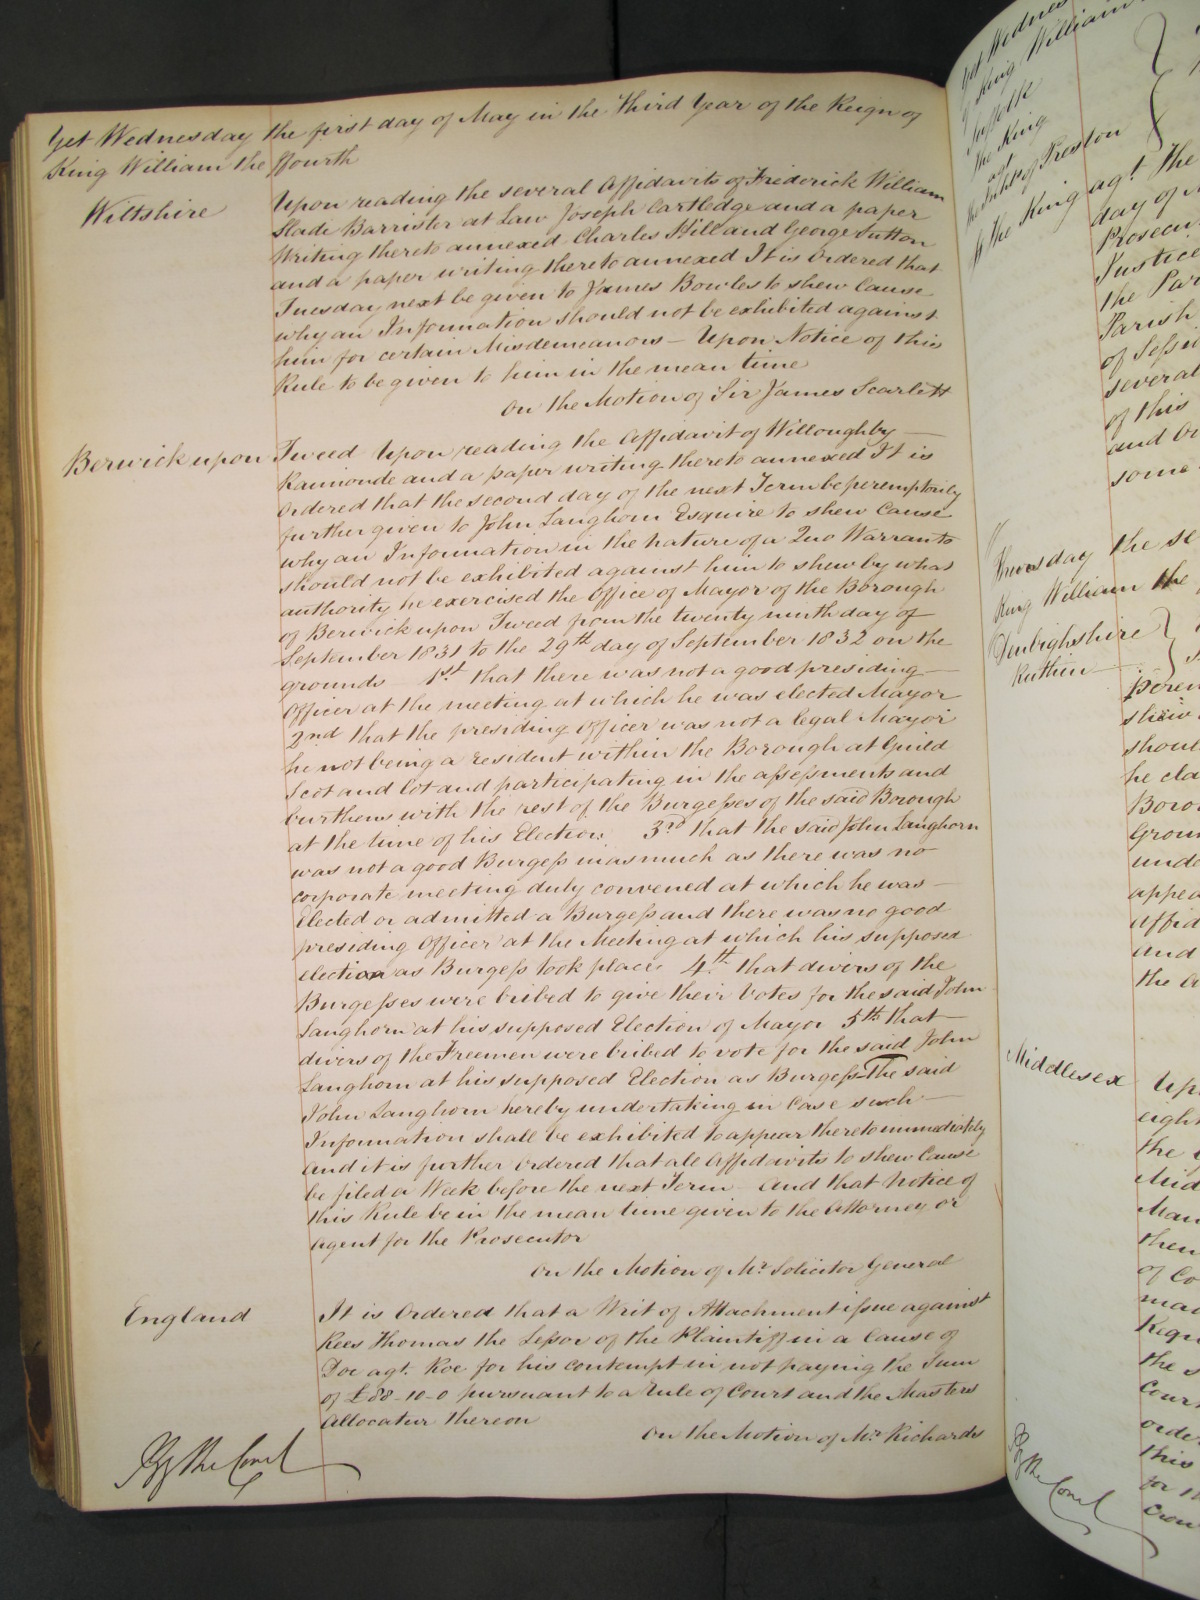 Yet Wednesday the first day of May in the Third Year of the Reign of
King William the ffourth
Wiltshire
Upon reading the several Affidavits of Frederick William
Slade Barrister at Law Joseph Cartledge and a paper
Writing thereto annexed Charles Hill and George Sutton
and a paper writing thereto annexed It is Ordered that
Tuesday next be given to James Bowles to shew Cause
why an Information should not be exhibited against
him for certain Misdemeanors – Upon Notice of this
Rule to be given to him in the mean time
On the Motion of Sir James Scarlett
Berwick upon Tweed Upon reading the Affidavit of Willoughby —
Raimonde and a paper writing thereto annexed It is
Ordered that the second day of the next Term be peremptorily
further given to John Langhorn Esquire to shew Cause
why an Information in the nature of a Quo Warranto
should not be exhibited against him to shew by what
authority he exercised the Office of Mayor of the Borough
of Berwick upon Tweed from the twenty ninth day of
September 1831 to the 29th day of September 1832 on the
grounds 1st that there was not a good presiding —
Officer at the meeting at which he was elected Mayor
2nd that the presiding Officer was not a legal Mayor
he not being a resident within the Borough at Guild
Scot and lot and participating in the assessments and
burthens with the rest of the Burgesses of the said Borough
at the time of his Election 3rd that the said John Langhorn
was not a good Burgess inasmuch as there was no
corporate meeting duly convened at which he was —
Elected or admitted a Burgess and there was no good
presiding Officer at the Meeting at which his supposed
election as Burgess took place 4th that divers of the
Burgesses were bribed to give their Votes for the said John
Langhorn at his supposed Election of Mayor 5th that —
divers of the Freemen were bribed to vote for the said John
Langhorn at his supposed Election as Burgess The said
John Langhorn hereby undertaking in Case such —
Information shall be exhibited to appear thereto immediately
And it is further Ordered that all Affidavits to shew Cause
be filed a Week before the next Term And that Notice of
this Rule be in the mean time given to the Attorney or
Agent for the Prosecutor
On the Motion of Mr Solicitor General
England
It is Ordered that a Writ of Attachment issue against
Rees Thomas the Lessor of the Plaintiff in a Cause of
Doe agt. Roe for his contempt in not paying the Sum
of £88-10-0 pursuant to a Rule of Court and the Masters
Allocatur thereon
On the Motion of Mr Richards
By the Court
Yet Wednes
King William
Suffolk
The King
agt
the Inhts of Preston
The King agt The
day of
Prosecu
Justice
the Par
Parish
of Sessi
several
of this
and
some
Thursday the se
King William the
Denbighshire
Ruthin
perem
shew
shoul
he cla
Boro
Groun
unde
appea
Affid
and
the
Middlesex
Up
eigh
the
Mid
Man
then
of Co
mad
Requ
the s
Court
orde
this
for
Crow
By the Court